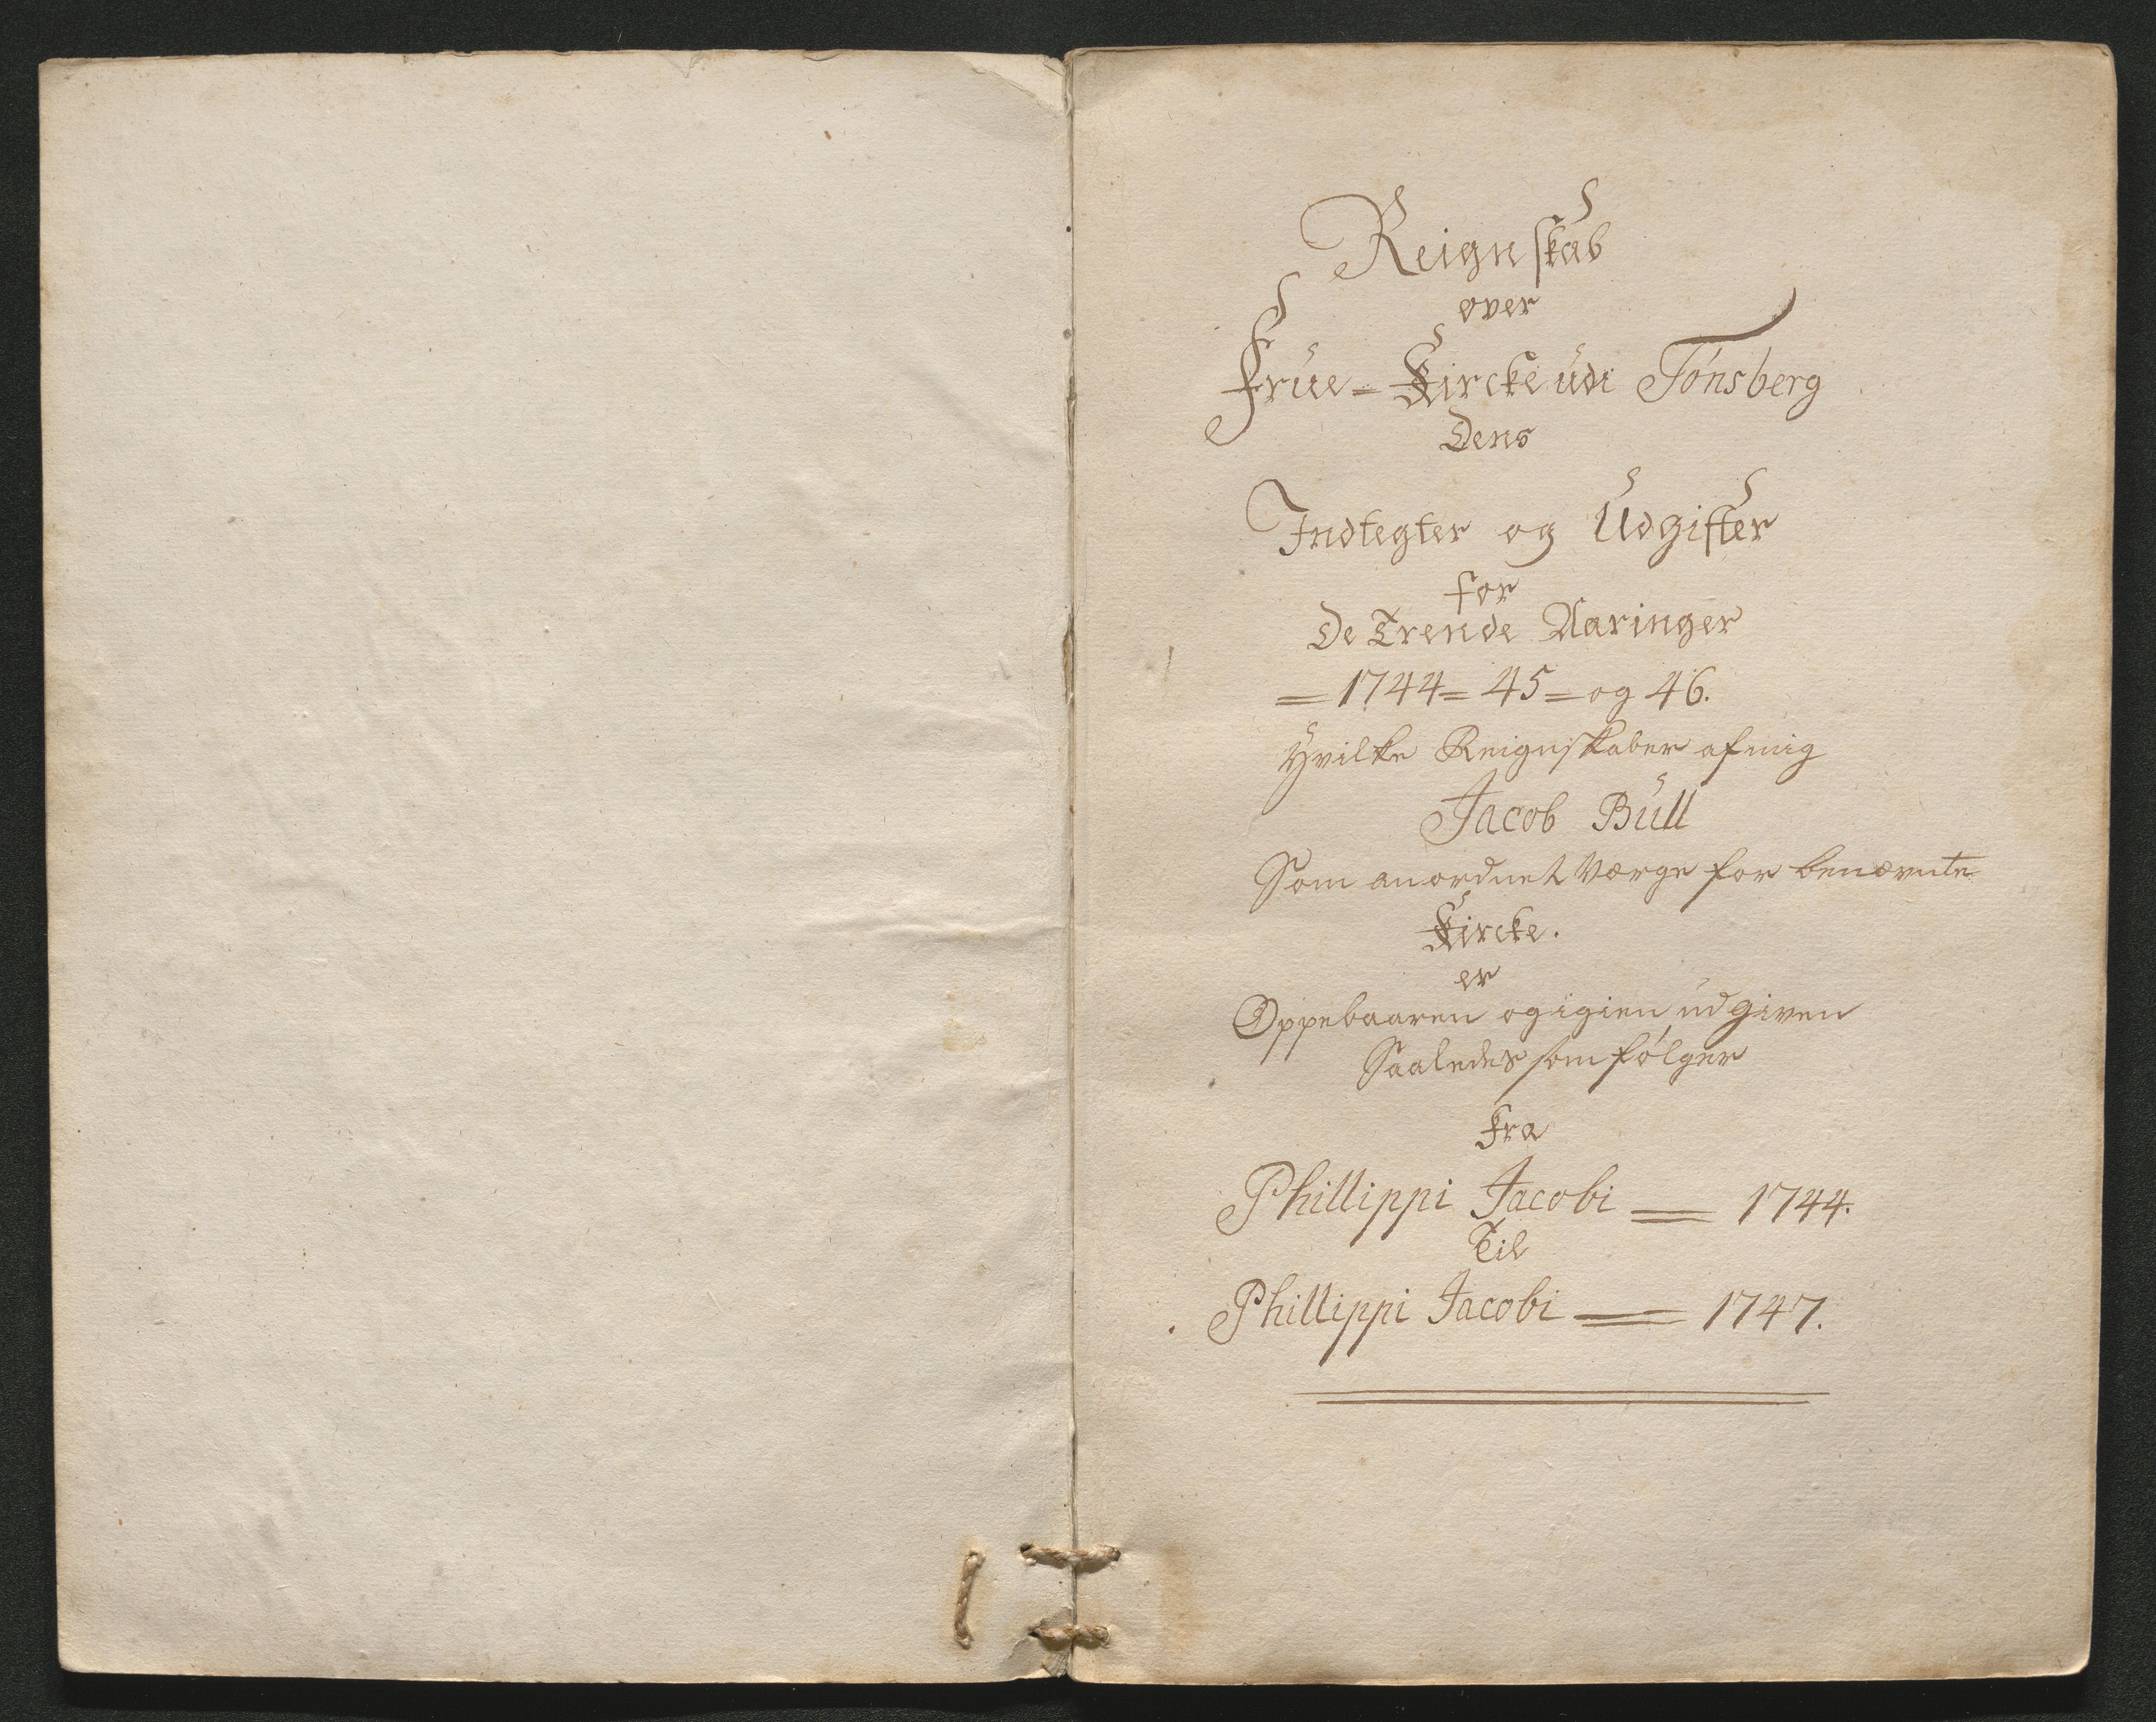 Reignskab
over
Frue= Kircke udi Tønsberg
Dens
Indtegter og Udgifter
for
De Trende Aaringer
=1744=45=og 46.
Hvilke Reignskaber af mig
Jacob Bull
Som anordnet Værge for benævnte
Kircke.
er
Oppebaaren og igien udgiven
Saaledes som følger
Fra
Phillippi Jacobi = 1744.
Til
Phillippi Jacobi = 1747.